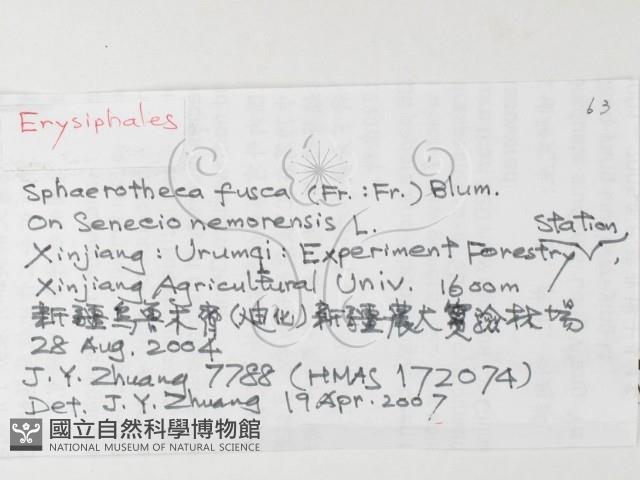 63
Erysiphales
Sphaerotheca fusca (Fr.:Fr.) Blum.
On Senecio nemorensis L.
Station
Xinjiang: Urumqi: Experiment Forestry,
Xinjiang Agricultural Univ. 1600m
新疆烏魯木齊 新疆農大實驗林場
28 Aug. 2004
J.Y. Zhuang 7788 (HMAS 172074)
Det. J.Y. Zhuang 19 Apr. 2007
國立自然科學博物館
NATIONAL MUSEUM OF NATURAL SCIENCE